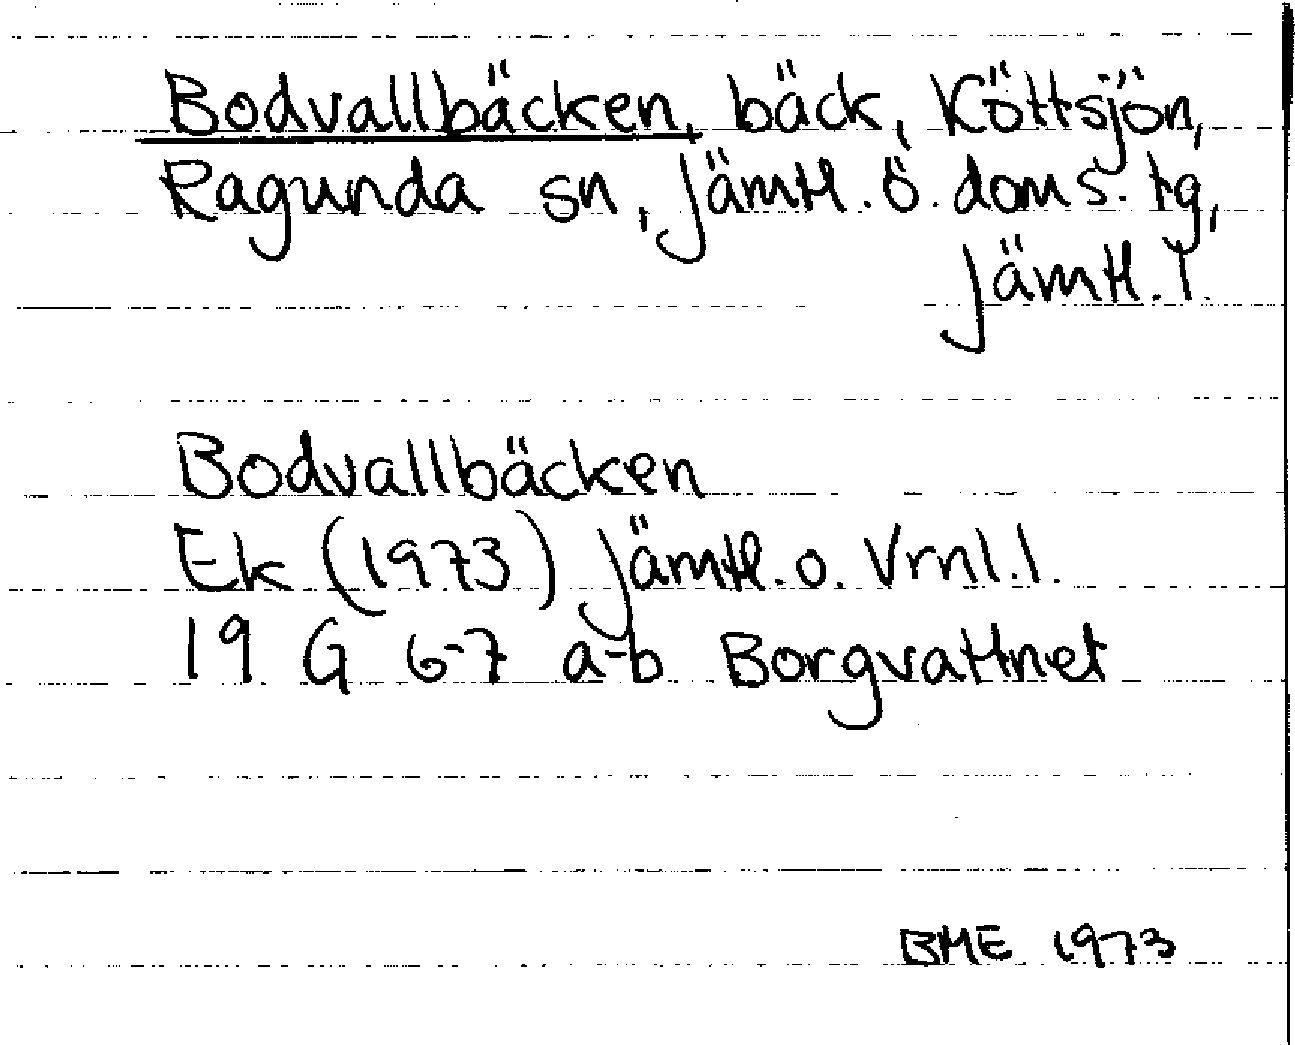 Bodvallbäcken, bäck, Köttsjön,
Ragunda sn, Jämtl. ö. doms. tg,
Jämtl. l.
Bodvallbäcken
Ek (1973) Jämtl. o. Vrnl. l.
19 G 6-7 a-b Borgvattnet
BME 1973